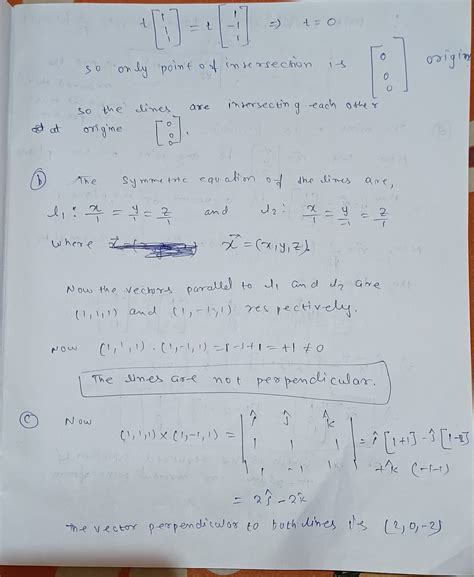 t [1 1 1] = t [1 -1 1] ⇒ t = 0
so only point of intersection is [0 0 0] origin
so the lines are intersecting each other
at origine [0 0 0].
(b) The symmetric equation of the lines are,
l₁: x/1 = y/1 = z/1 and l₂: x/1 = y/-1 = z/1
where x⃗ = (x,y,z).
Now the vectors parallel to l₁ and l₂ are
(1,1,1) and (1,-1,1) respectively.
Now (1,1,1).(1,-1,1) = 1-1+1 = +1 ≠ 0
The lines are not perpendicular.
(c) Now
(1,1,1)×(1,-1,1) = | î ĵ k̂ | = î [1+1] - ĵ [1-1]
| 1 1 1 |
| 1 -1 1 | + k̂ (-1-1)
= 2ĵ - 2k̂
The vector perpendicular to both lines is (2,0,-2)